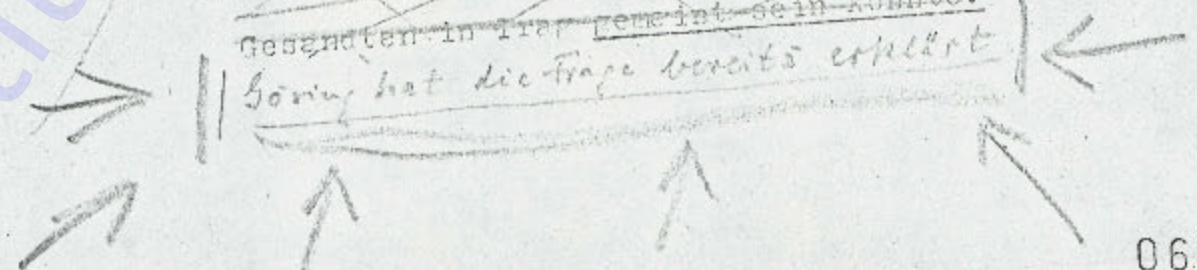 Gesandten in Prag gemeint sein könnte.
Göring hat die Frage bereits erklärt
06